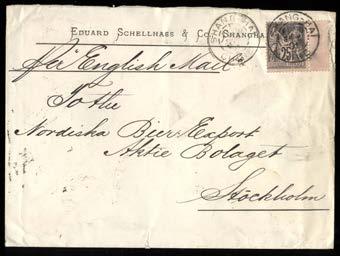 EDUARD SCHELLHASS & CO. SHANGHAI
SHANG-HAI
SHANG-HAI
25
per English Mail
To the
Nordiska Bier Export
Aktie Bolaget
Stockholm